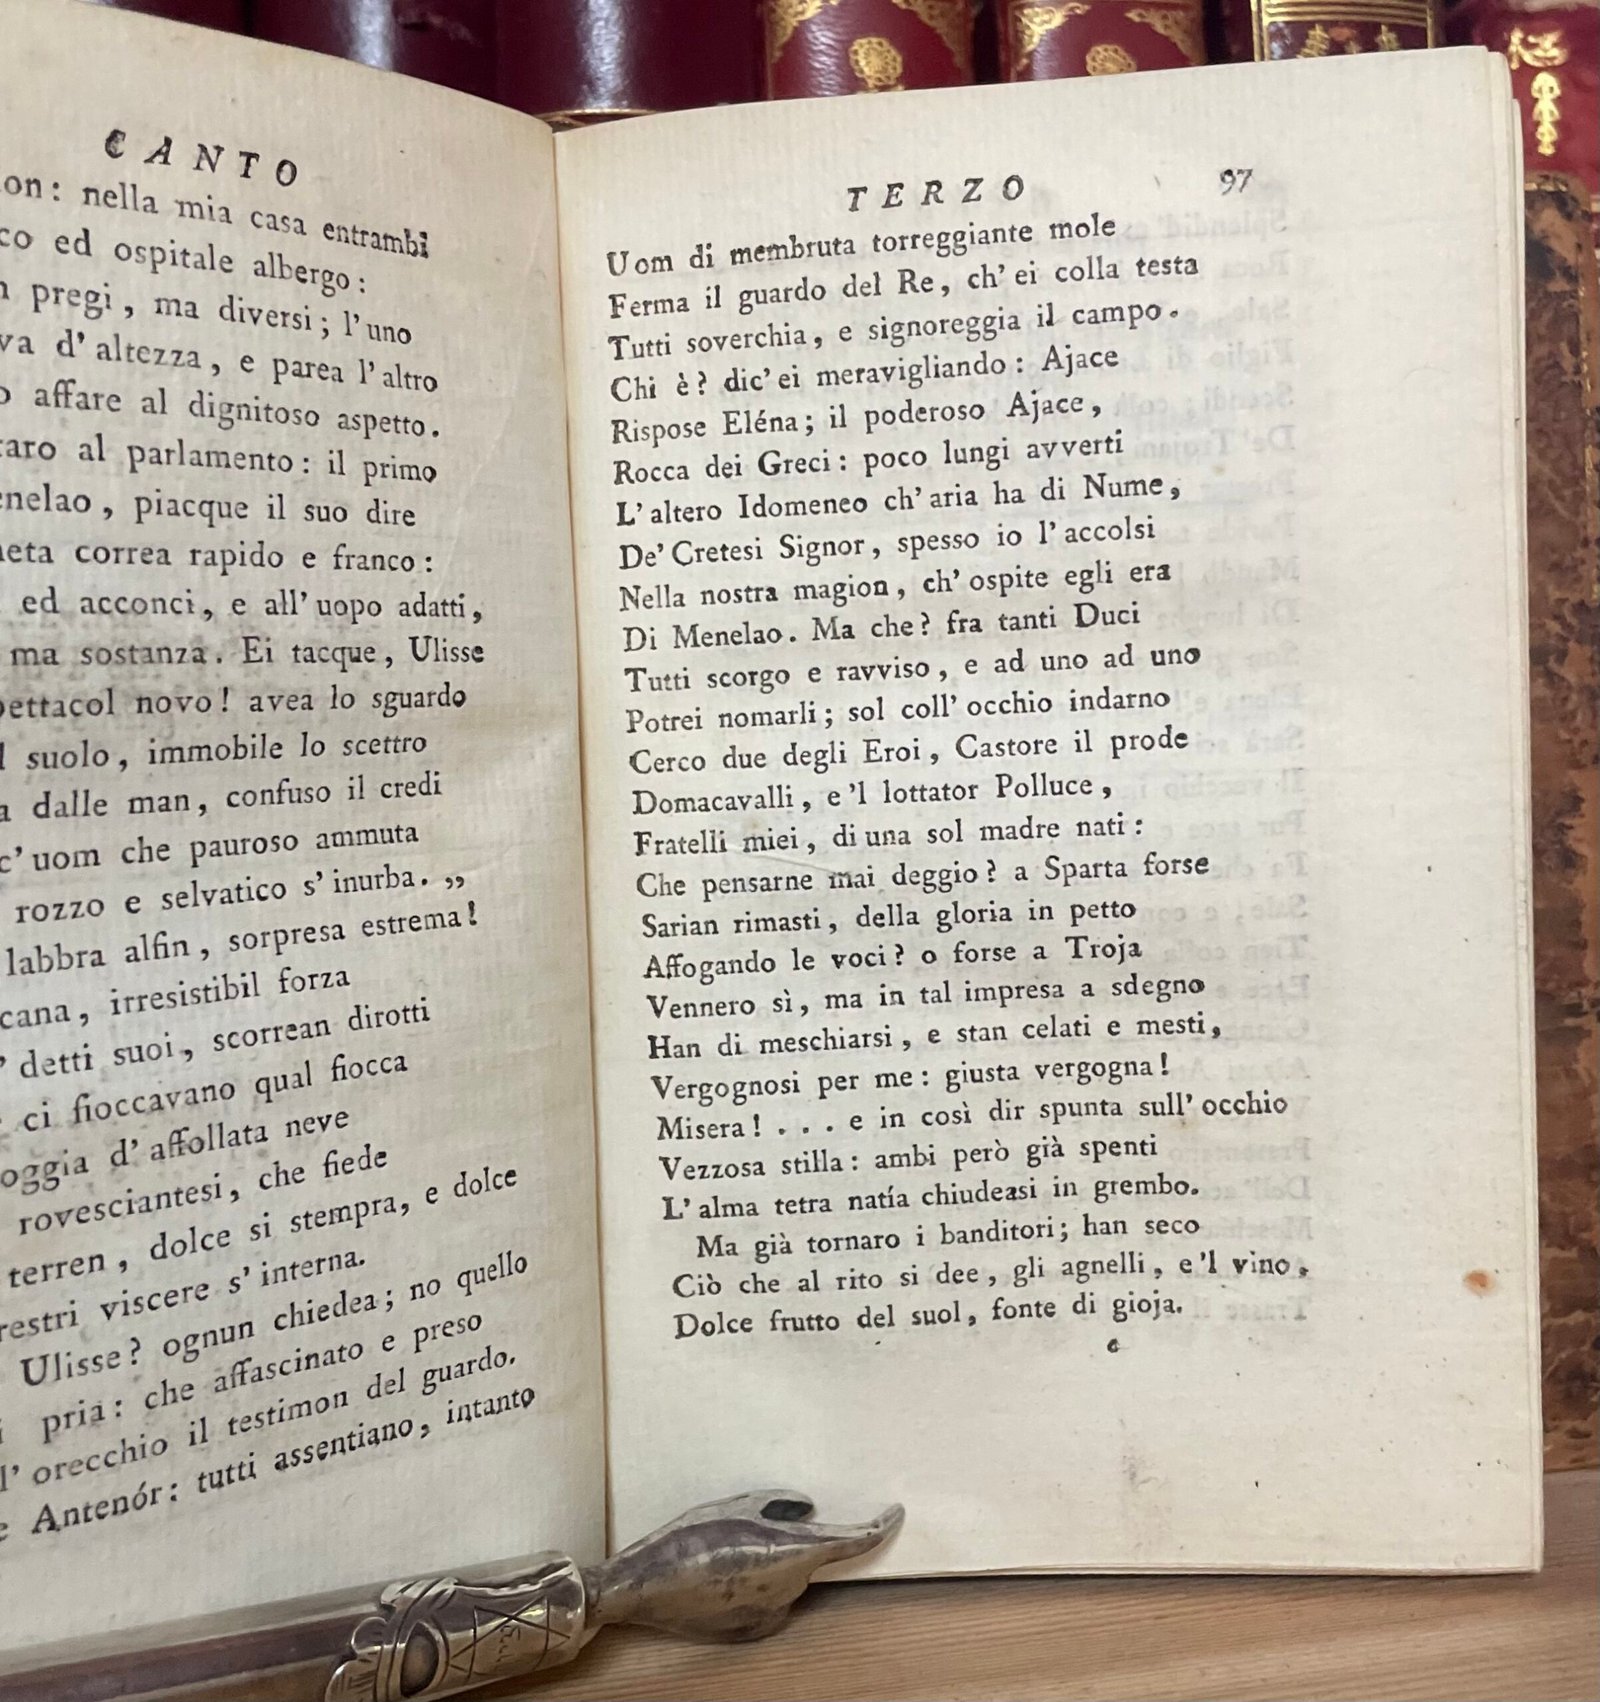 CANTO
nella mia casa entrambi
ed ospitale albergo:
pregi, ma diversi; l'uno
d'altezza, e parea l'altro
affare al dignitoso aspetto.
al parlamento: il primo
piacque il suo dire
correa rapido e franco:
ed acconci, e all'uopo adatti,
ma sostanza. Ei tacque, Ulisse
novo! avea lo sguardo
suolo, immobile lo scettro
dalle man, confuso il credi
c'uom che pauroso ammuta
rozzo e selvatico s'inurba.„
labbra alfin, sorpresa estrema!
irresistibil forza
detti suoi, scorrean dirotti
ci fioccavano qual fiocca
d'affollata neve
rovesciantesi, che fiede
terren, dolce si stempra, e dolce
viscere s'interna.
Ulisse? ognun chiedea; no quello
pria: che affascinato e preso
l'orecchio il testimon del guardo.
Antenór: tutti assentiano, intanto
TERZO 97
Uom di membruta torreggiante mole
Ferma il guardo del Re, ch'ei colla testa
Tutti soverchia, e signoreggia il campo.
Chi è? dic'ei meravigliando: Ajace
Rispose Eléna; il poderoso Ajace,
Rocca dei Greci: poco lungi avverti
L'altero Idomeneo ch'aria ha di Nume,
De'Cretesi Signor, spesso io l'accolsi
Nella nostra magion, ch'ospite egli era
Di Menelao. Ma che? fra tanti Duci
Tutti scorgo e ravviso, e ad uno ad uno
Potrei nomarli; sol coll'occhio indarno
Cerco due degli Eroi, Castore il prode
Domacavalli, e'l lottator Polluce,
Fratelli miei, di una sol madre nati:
Che pensarne mai deggio? a Sparta forse
Sarian rimasti, della gloria in petto
Affogando le voci? o forse a Troja
Vennero sì, ma in tal impresa a sdegno
Han di meschiarsi, e stan celati e mesti,
Vergognosi per me: giusta vergogna!
Misera! . . . e in così dir spunta sull'occhio
Vezzosa stilla: ambi però già spenti
L'alma tetra natía chiudeasi in grembo.
Ma già tornaro i banditori; han seco
Ciò che al rito si dee, gli agnelli, e'l vino,
Dolce frutto del suol, fonte di gioja.